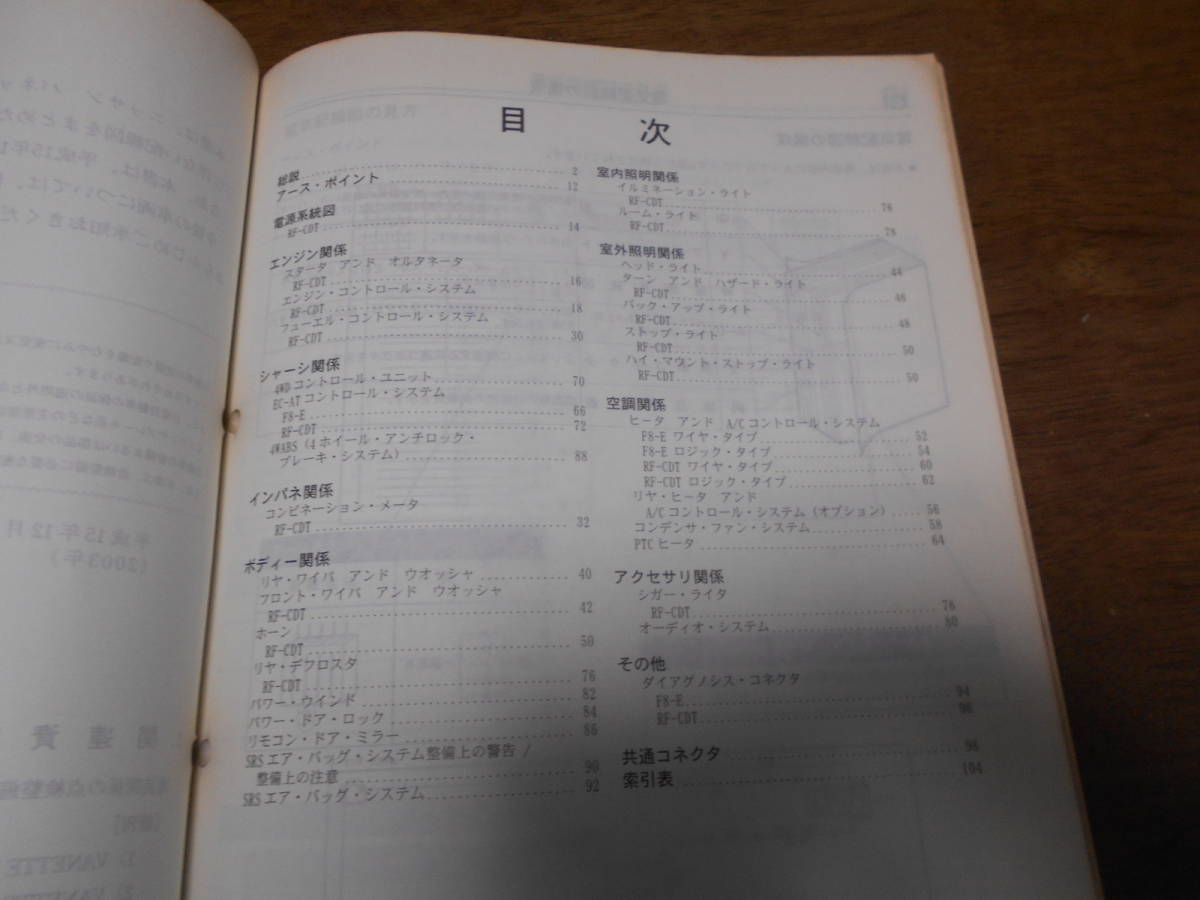 目 次
総説 2
アース・ポイント 12
電源系統図
RF-CDT 14
エンジン関係
スタータ アンド オルタネータ
RF-CDT 16
エンジン・コントロール・システム
RF-CDT 18
フューエル・コントロール・システム
RF-CDT 30
シャーシ関係
4WDコントロール・ユニット 70
EC-ATコントロール・システム
F8-E 66
RF-CDT 72
4WABS (4ホイール・アンチロック・
ブレーキ・システム) 88
インパネ関係
コンビネーション・メータ
RF-CDT 32
ボディー関係
リヤ・ワイパ アンド ウオッシャ 40
フロント・ワイパ アンド ウオッシャ
RF-CDT 42
ホーン
RF-CDT 50
リヤ・デフロスタ
RF-CDT 76
パワー・ウインド 82
パワー・ドア・ロック 84
リモコン・ドア・ミラー 86
SRSエア・バッグ・システム整備上の警告 /
整備上の注意 90
SRSエア・バッグ・システム 92
室内照明関係
イルミネーション・ライト
RF-CDT 78
ルーム・ライト
RF-CDT 78
室外照明関係
ヘッド・ライト 44
ターン アンド ハザード・ライト
RF-CDT 46
バック・アップ・ライト
RF-CDT 48
ストップ・ライト
RF-CDT 50
ハイ・マウント・ストップ・ライト
RF-CDT 50
空調関係
ヒータ アンド A/Cコントロール・システム
F8-E ワイヤ・タイプ 52
F8-E ロジック・タイプ 54
RF-CDT ワイヤ・タイプ 60
RF-CDT ロジック・タイプ 62
リヤ・ヒータ アンド
A/Cコントロール・システム (オプション) 56
コンデンサ・ファン・システム 58
PTCヒータ 64
アクセサリ関係
シガー・ライタ
RF-CDT 76
オーディオ・システム 80
その他
ダイアグノシス・コネクタ
F8-E 94
RF-CDT 96
共通コネクタ 98
索引表 104